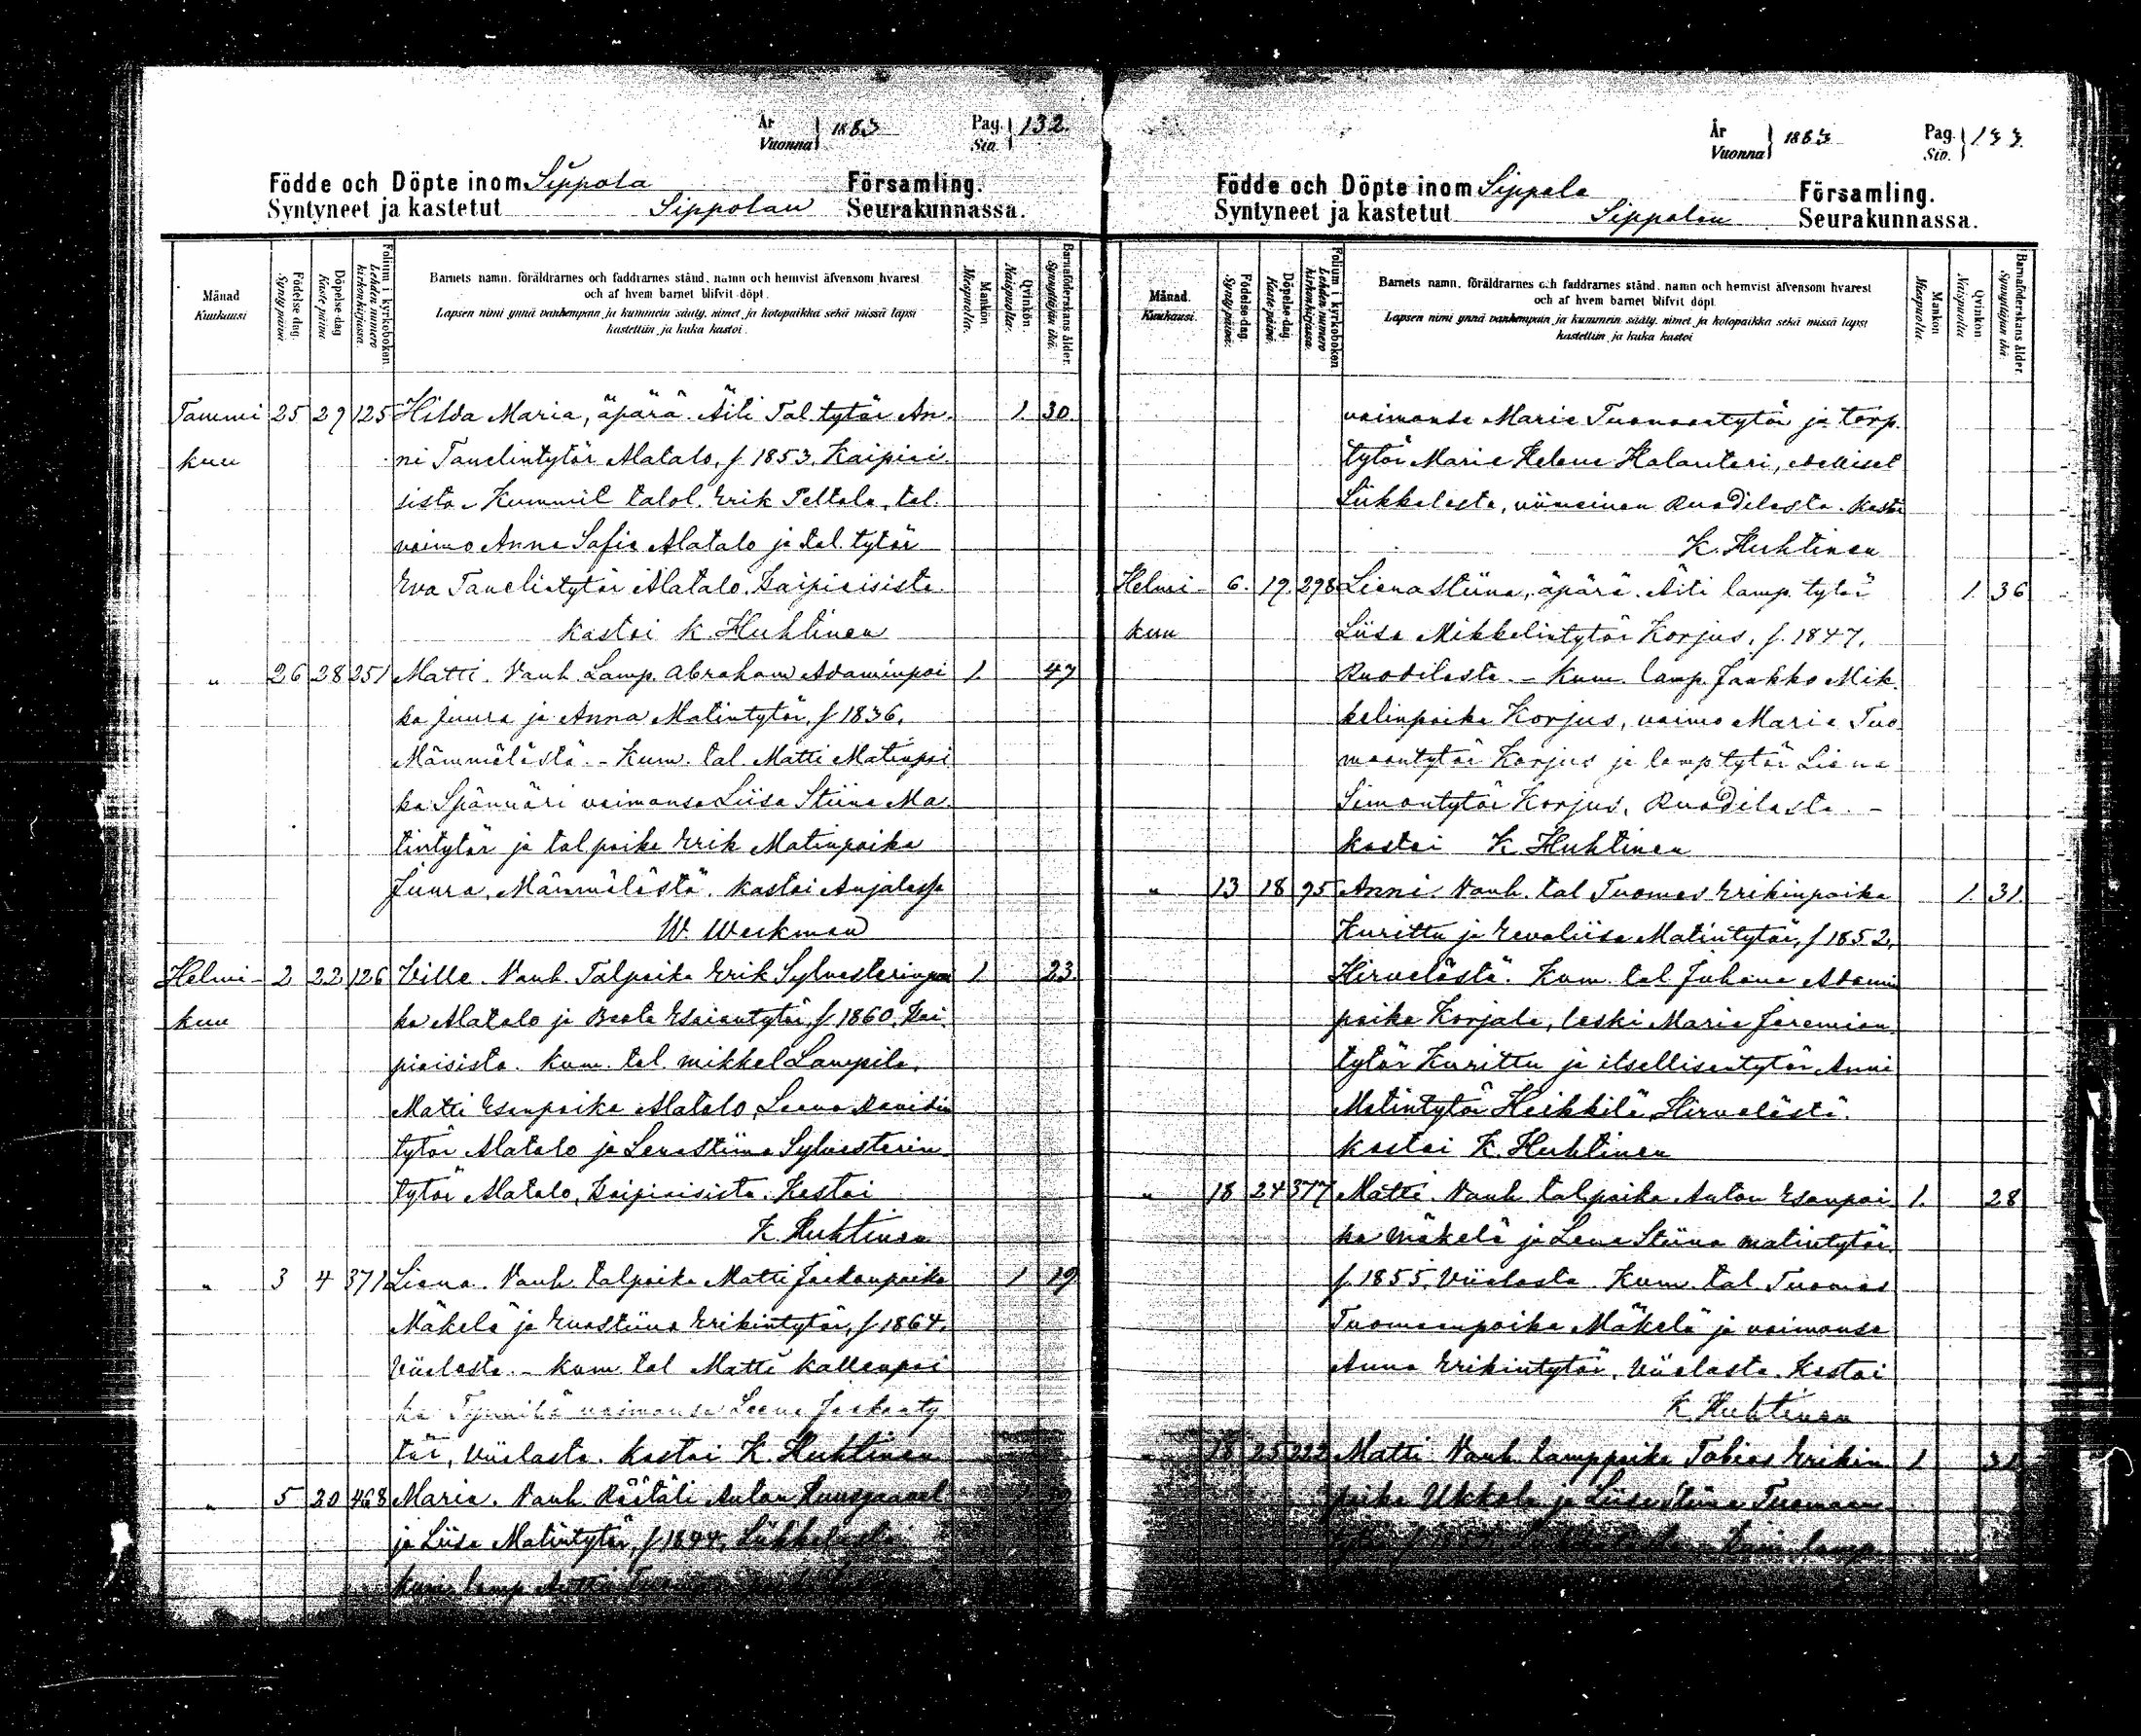 År
Vuonna 1883 Pag. 132.
Siv.
Födde och Döpte inom Sippola Församling.
Syntyneet ja kastetut Sippolan Seurakunnassa.
Månad
Kuukausi
Födelse-dag.
Syntypäivä.
Döpelse-dag
Kaste-päivä
Folium i kyrkoboken
Lehden numero
kirkonkirjassa.
Barnets namn, föräldrarnes och faddrarnes stånd, namn och hemvist äfvensom hvarest
och af hvem barnet blifvit döpt.
Lapsen nimi ynnä vanhempain ja kummein sääty, nimet ja kotopaikka sekä missä lapsi
kastettiin ja kuka kastoi.
Mankön
Miespuolia.
Qvinkön.
Naispuolia.
Barnaföderskans ålder.
Synnyttäjän ikä.
Tammi 25 29 125 Hilda Maria, äpärä. Äiti Tal. tytär An- 1. 30.
kuu ni Tanelintytär Alatalo, f 1853, Kaipiai-
sista. Kummit talol. Erik Peltola, tal.
vaimo Anna Sofia Alatalo ja tal. tytär
Eva Tanelintytär Alatalo, Kaipiaisista.
kastoi K. Huhtinen
" 26 28 251 Matti. Vanh. Lamp. Abraham Adaminpoi 1. 47
ka Juura ja Anna Matintytär, f 1836,
Mämmälästä. - Kum. tal. Matti Matinpoi
ka Spännäri vaimonsa Liisa Stiina Ma-
tintytär ja tal poika Erik Matinpoika
Juura, Mämmälästä. kastoi Anjalassa
W. Weckman
Helmi- 2 22 126 Ville. Vanh. Talpoika Erik Sylvesterinpoi 1. 23.
kuu ka Alatalo ja Beata Esaiantytär, f 1860, Kai-
piaisista. kum. tal. mikkel Lampila,
Matti Esanpoika Alatalo, Leena Davidin
tytär Alatalo ja Lenastiina Sylvesterin-
tytär Alatalo, Kaipiaisista. Kastoi
K. Huhtinen
" 3 4 371 Liena. Vanh. talpoika Matti Jaakonpoika 1 19
Mäkelä ja Evastiina Erikintytär, f 1864,
Viialasta. - kum. tal Matti Kallenpoi
ka vaimonsa Leena Jaakonty
tär, Viialasta. kastoi K. Huhtinen
" 5 20 468 Maria. Vanh. Räätäli Anton
ja Liisa Matintytär, f 1844, Liikkalasta
kum. lamp. Antti
År
Vuonna 1883 Pag. 133.
Siv.
Födde och Döpte inom Sippola Församling.
Syntyneet ja kastetut Sippolan Seurakunnassa.
Månad.
Kuukausi.
Födelse-dag.
Syntypäivä.
Döpelse-dag.
Kaste-päivä.
Folium i kyrkoboken
Lehden numero
kirkonkirjassa.
Barnets namn, föräldrarnes och faddrarnes stånd, namn och hemvist äfvensom hvarest
och af hvem barnet blifvit döpt.
Lapsen nimi ynnä vanhempain ja kummein sääty, nimet ja kotopaikka sekä missä lapsi
kastettiin ja kuka kastoi
Mankön
Miespuolia.
Qvinkön
Naispuolia
Barnaföderskans ålder.
Synnyttäjän ikä.
vaimonsa Maria Tuomaantytär ja torp.
tytär Maria Helena Halanteri, edelliset
Liikkalasta, viimeinen Ruodilasta. Kastoi
K. Huhtinen
Helmi- 6. 19. 298 Lienastiina, äpärä. Äiti lamp. tytär 1. 36
kuu Liisa Mikkelintytär Korjus, f. 1847,
Ruodilasta. - kum. lamp. Jaakko Mik-
kelinpoika Korjus, vaimo Maria Tuo-
maantytär Korjus ja lamp tytär Liena
Simontytär Korjus, Ruodilasta. -
kastoi K. Huhtinen
" 13 18 95 Anni. Vanh. tal Tuomas Erikinpoika 1. 31.
Kurittu ja Eevaliisa Matintytär, f 1852,
Hirvelästä. Kum. tal Juhana Adamin
poika Korjala, leski Maria Jeremian-
tytär Kurittu ja itsellisentytär Anni
Matintytär Heikkilä, Hirvelästä.
kastoi K. Huhtinen
" 18 24 377 Matti. Vanh. talpoika Anton Esanpoi- 1. 28
ka Mäkelä ja Lena Stiina matintytär
f. 1855, Viialasta. Kum. tal. Tuomas
Tuomaanpoika Mäkelä ja vaimonsa
Anna Erikintytär, Viialasta. Kastoi
K. Huhtinen
" 18 25 222 Matti. Vanh. lamppoika Tobias Erikin 1
poika Ukkola ja Liisastiina Tuomaan-
tytär f. lamp.